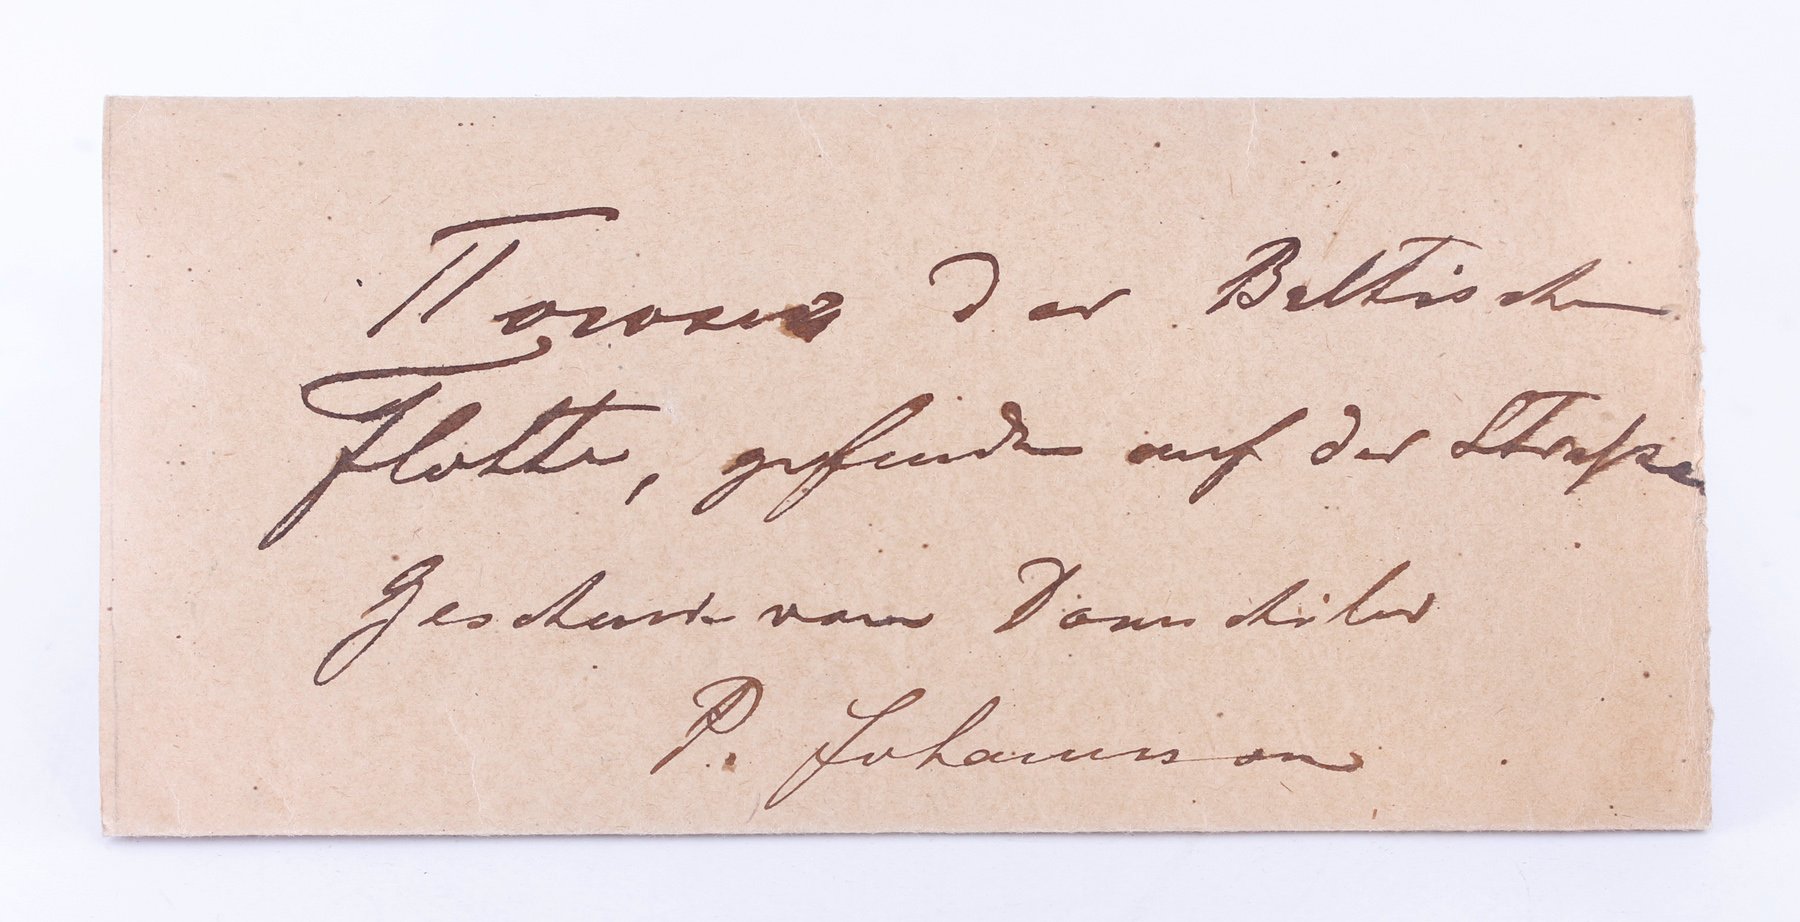 der Baltischen
Flotte, gefunden auf der Straße
Geschenk vom Domschüler
P. Johannson